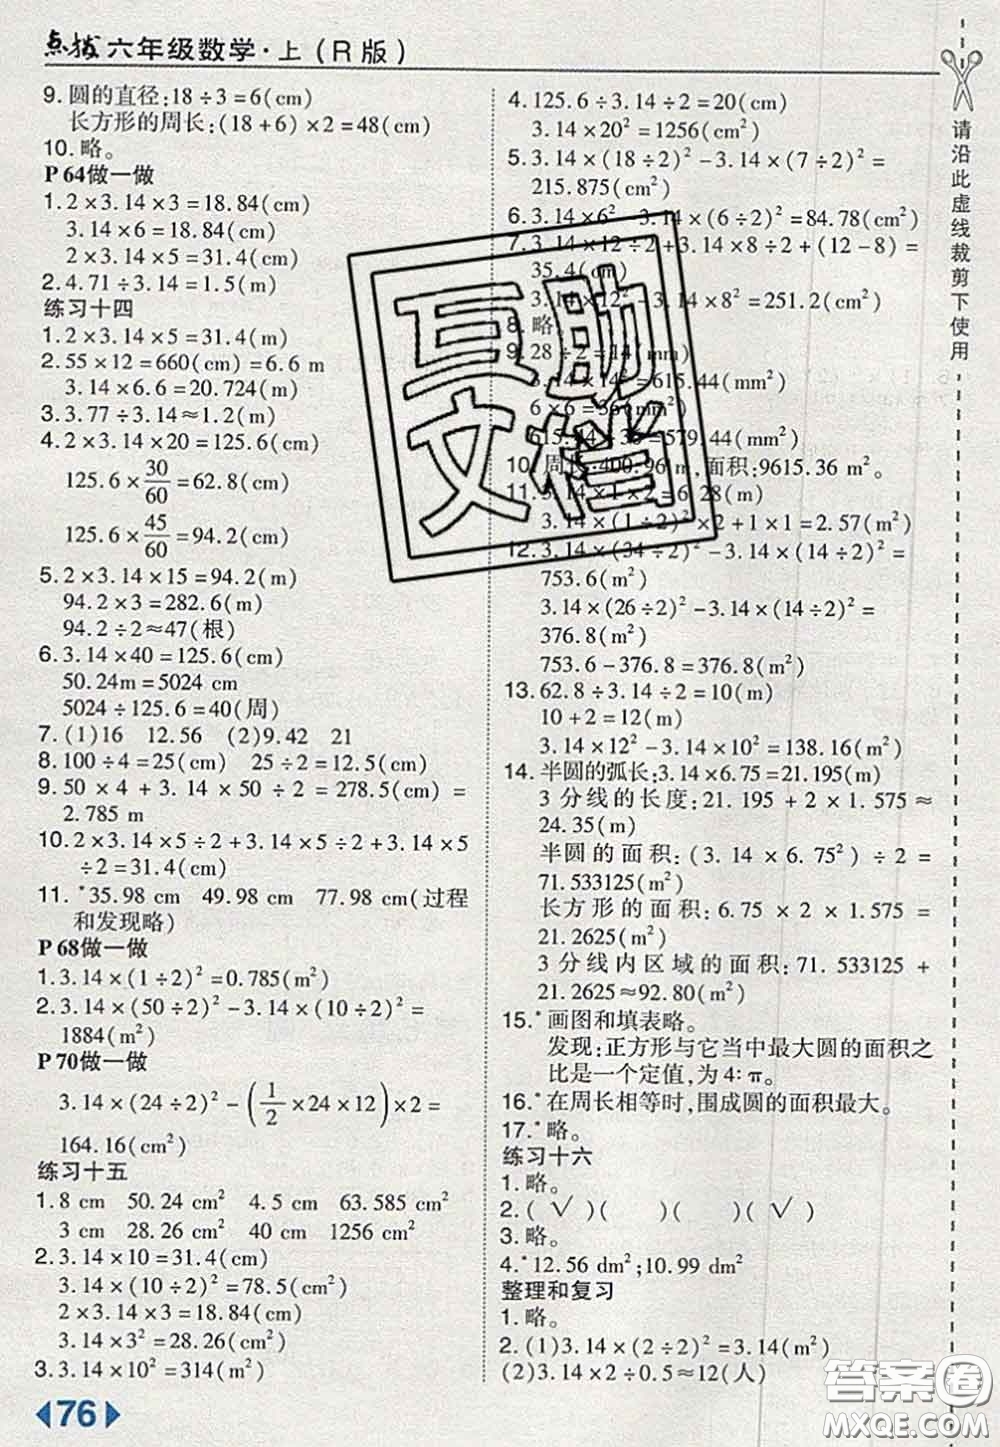 点拨 六年级数学·上(R版)
9.圆的直径:18÷3=6(cm)
长方形的周长:(18+6)×2=48(cm)
10.略。
P 64做一做
1.2×3.14×3=18.84(cm)
3.14×6=18.84(cm)
2×3.14×5=31.4(cm)
2.4.71÷3.14=1.5(m)
练习十四
1.2×3.14×5=31.4(m)
2.55×12=660(cm)=6.6 m
3.14×6.6=20.724(m)
3.3.77÷3.14≈1.2(m)
4.2×3.14×20=125.6(cm)
125.6×30/60=62.8(cm)
125.6×45/60=94.2(cm)
5.2×3.14×15=94.2(m)
94.2×3=282.6(m)
94.2÷2≈47(根)
6.3.14×40=125.6(cm)
50.24m=5024 cm
5024÷125.6=40(周)
7.(1)16 12.56 (2)9.42 21
8.100÷4=25(cm) 25÷2=12.5(cm)
9.50×4+3.14×50÷2=278.5(cm)=
2.785 m
10.2×3.14×5÷2+3.14×5÷2+3.14×5
÷2=31.4(cm)
11.*35.98 cm 49.98 cm 77.98 cm(过程
和发现略)
P 68做一做
1.3.14×(1÷2)²=0.785(m²)
2.3.14×(50÷2)²-3.14×(10÷2)²=
1884(m²)
P 70做一做
3.14×(24÷2)²-(1/2×24×12)×2=
164.16(cm²)
练习十五
1.8 cm 50.24 cm² 4.5 cm 63.585 cm²
3 cm 28.26 cm² 40 cm 1256 cm²
2.3.14×10=31.4(cm)
3.14×(10÷2)²=78.5(cm²)
2×3.14×3=18.84(cm)
3.14×3²=28.26(cm²)
3.3.14×10²=314(m²)
76
4.125.6÷3.14÷2=20(cm)
3.14×20²=1256(cm²)
5.3.14×(18÷2)²-3.14×(7÷2)²=
215.875(cm²)
6.3.14×6²-3.14×(6÷2)²=84.78(cm²)
7.3.14×12÷2+3.14×8÷2+(12-8)=
35.4(cm)
3.14×12²-3.14×8²=251.2(cm²)
8.略。
9.28÷2=14(mm)
3.14×14²=615.44(mm²)
6×6=36(mm²)
615.44-36=579.44(mm²)
10.周长:400.96 m,面积:9615.36 m²。
11.3.14×1×2=6.28(m)
3.14×(1÷2)²×2+1×1=2.57(m²)
12.3.14×(34÷2)²-3.14×(14÷2)²=
753.6(m²)
3.14×(26÷2)²-3.14×(14÷2)²=
376.8(m²)
753.6-376.8=376.8(m²)
13.62.8÷3.14÷2=10(m)
10+2=12(m)
3.14×12²-3.14×10²=138.16(m²)
14.半圆的弧长:3.14×6.75=21.195(m)
3分线的长度:21.195+2×1.575≈
24.35(m)
半圆的面积:(3.14×6.75²)÷2=
71.533125(m²)
长方形的面积:6.75×2×1.575=
21.2625(m²)
3分线内区域的面积:71.533125+
21.2625≈92.80(m²)
15.*画图和填表略。
发现:正方形与它当中最大圆的面积之
比是一个定值,为4:π。
16.*在周长相等时,围成圆的面积最大。
17.*略。
练习十六
1.略。
2.(√)( )( )(√)
3.略。
4.*12.56 dm²;10.99 dm²
整理和复习
1.略。
2.(1)3.14×(2÷2)²=3.14(m²)
(2)3.14×2÷0.5≈12(人)
请沿此虚线裁剪下使用
互助文档
答案圈
MXQE.COM